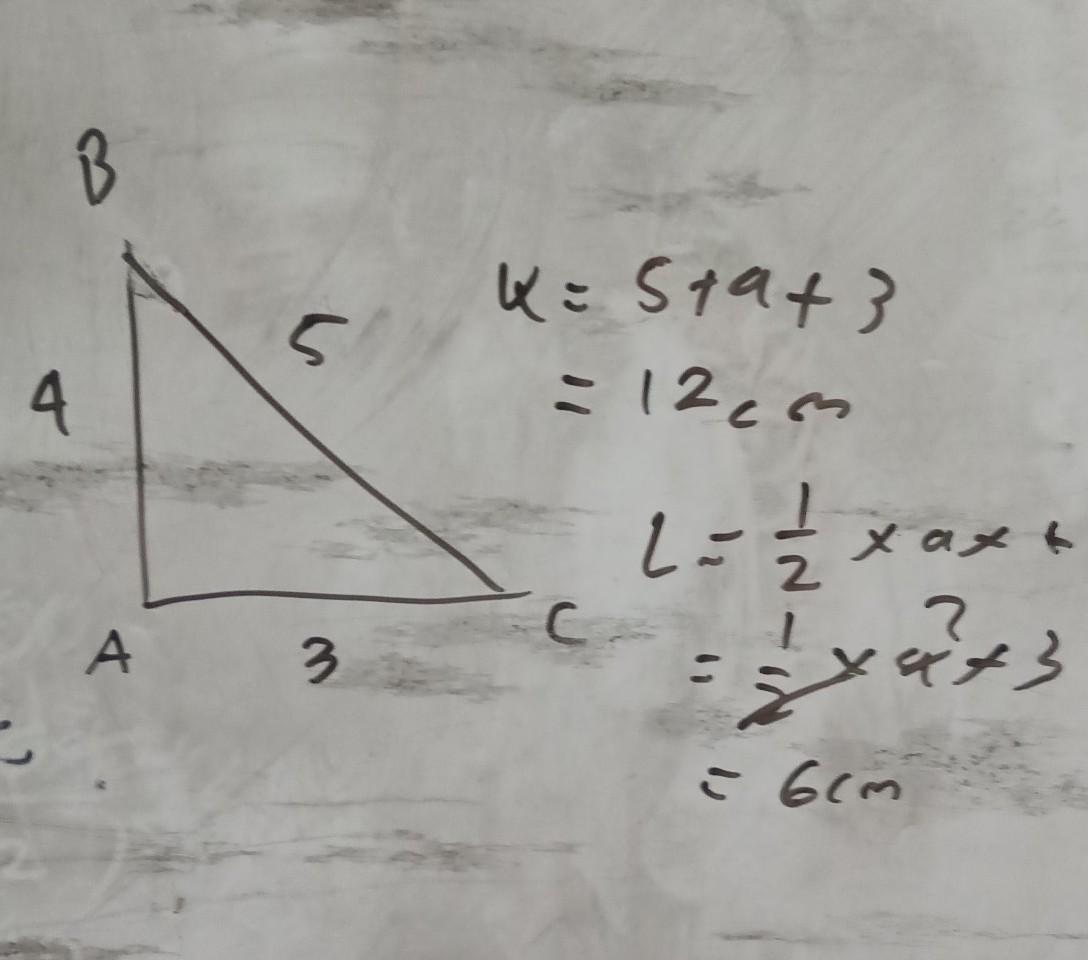 B
4
5
A
3
C
K = 5 + 4 + 3
= 12 cm
L = 1/2 × a × t
= 1/2 × 4 2 × 3
= 6 cm